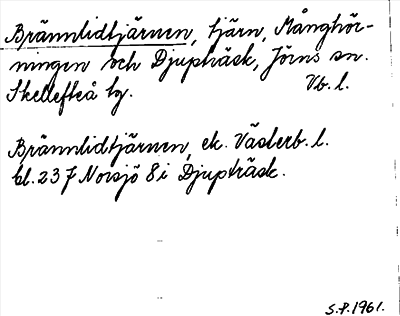 Brännlidtjärnen, tjärn, Månghör-
ningen och Djupträsk, Jörns sn.
Skellefteå tg. Vb. l.
Brännlidtjärnen, ek. Västerb. l.
bl. 237 Norsjö 8 i Djupträsk.
S.P. 1961.